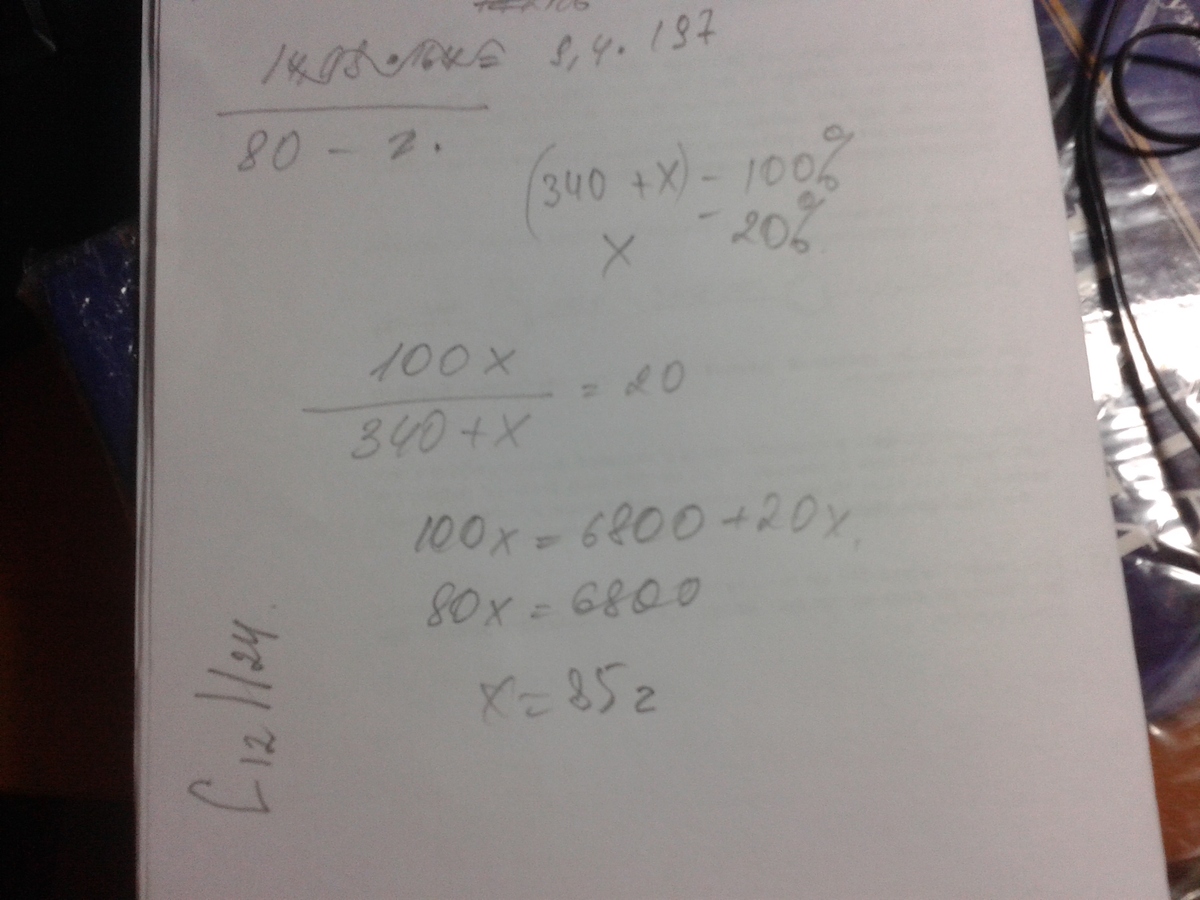 9,4 · 197
80 - г.
(340 + x) - 100%
x - 20%
100x
340 + x = 20
100x = 6800 + 20x
80x = 6800
x = 85г